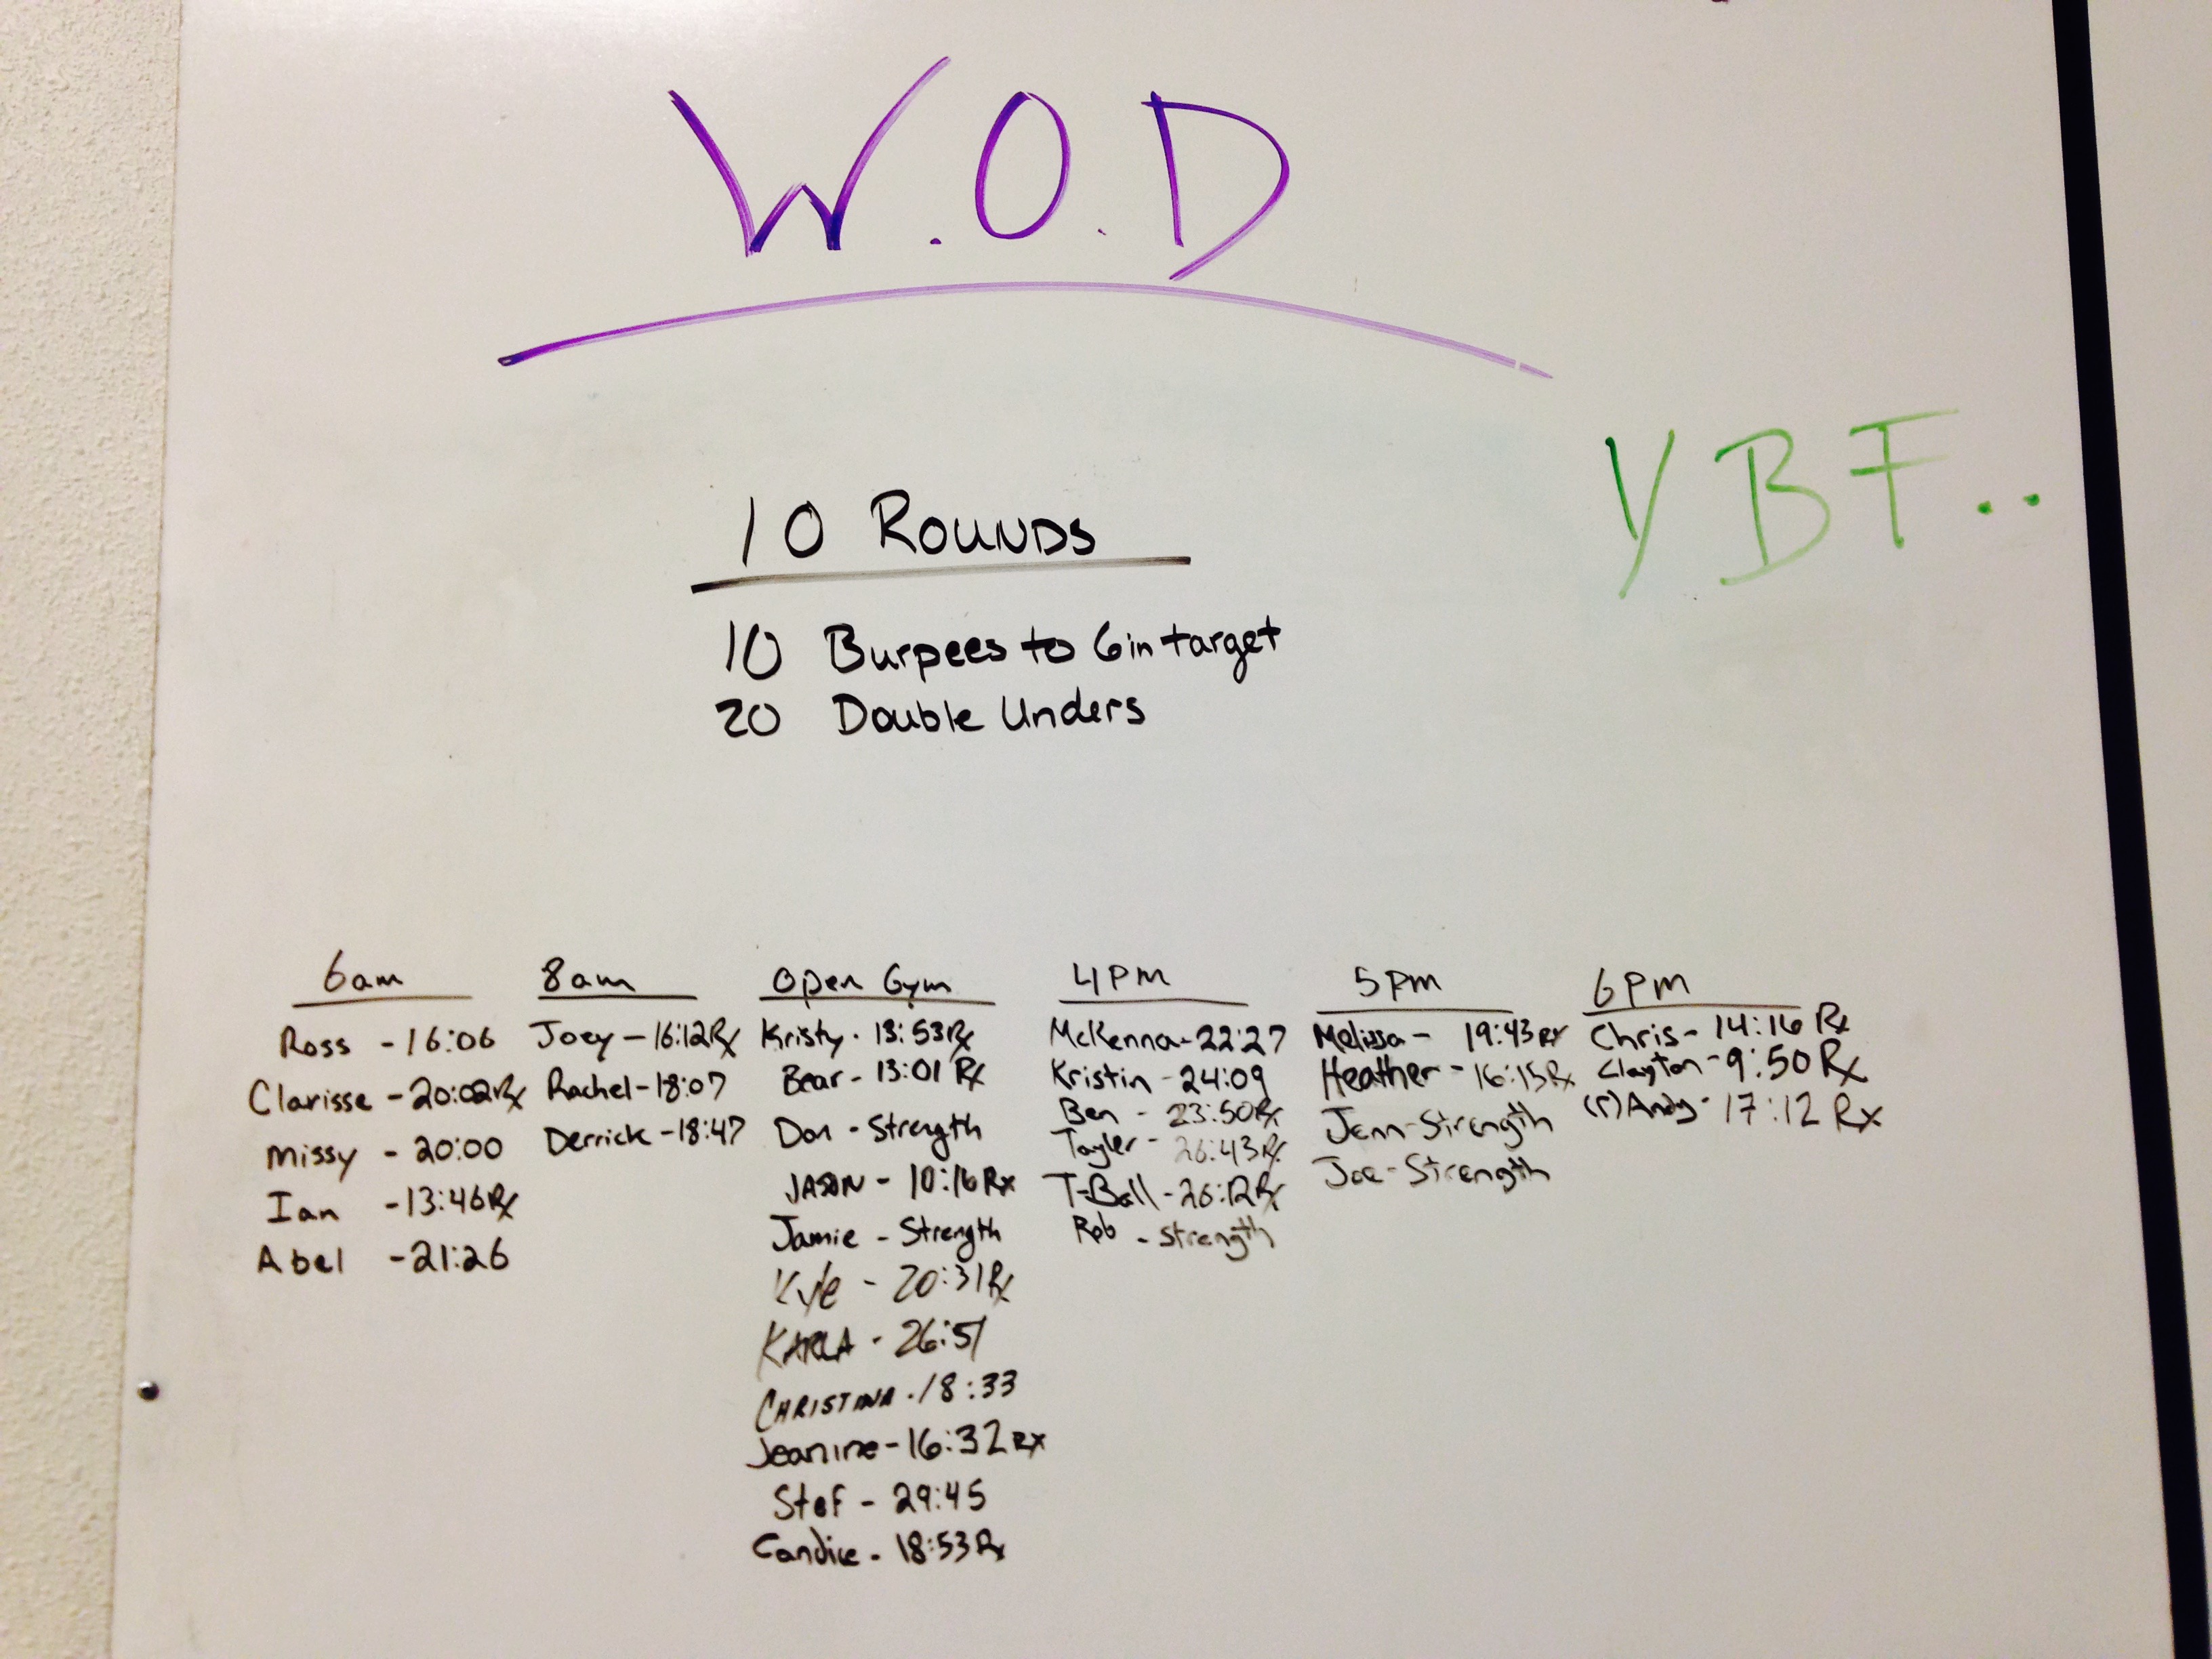 W.O.D
YBF..
10 ROUNDS
10 Burpees to 6in target
20 Double Unders
6am
Ross - 16:06
Clarisse - 20:02 Rx
Missy - 20:00
Ian - 13:46 Rx
Abel - 21:26
8am
Joey - 16:12 Rx
Rachel - 18:07
Derrick - 18:47
Open Gym
Kristy - 13:53 Rx
Bear - 13:01 Rx
Don - Strength
JASON - 10:16 Rx
Jamie - Strength
Kyle - 20:31 Rx
KARLA - 26:51
CHRISTINA - 18:33
Jeanine - 16:32 Rx
Stef - 29:45
Candice - 18:53 Rx
4PM
McKenna - 22:27
Kristin - 24:09
Ben - 23:50 Rx
Tayler - 26:43 Rx
T-Ball - 26:12 Rx
Rob - Strength
5pm
Melissa - 19:43 Rx
Heather - 16:15 Rx
Jenn - Strength
Joe - Strength
6pm
Chris - 14:16 Rx
Clayton - 9:50 Rx
(r) Andy - 17:12 Rx